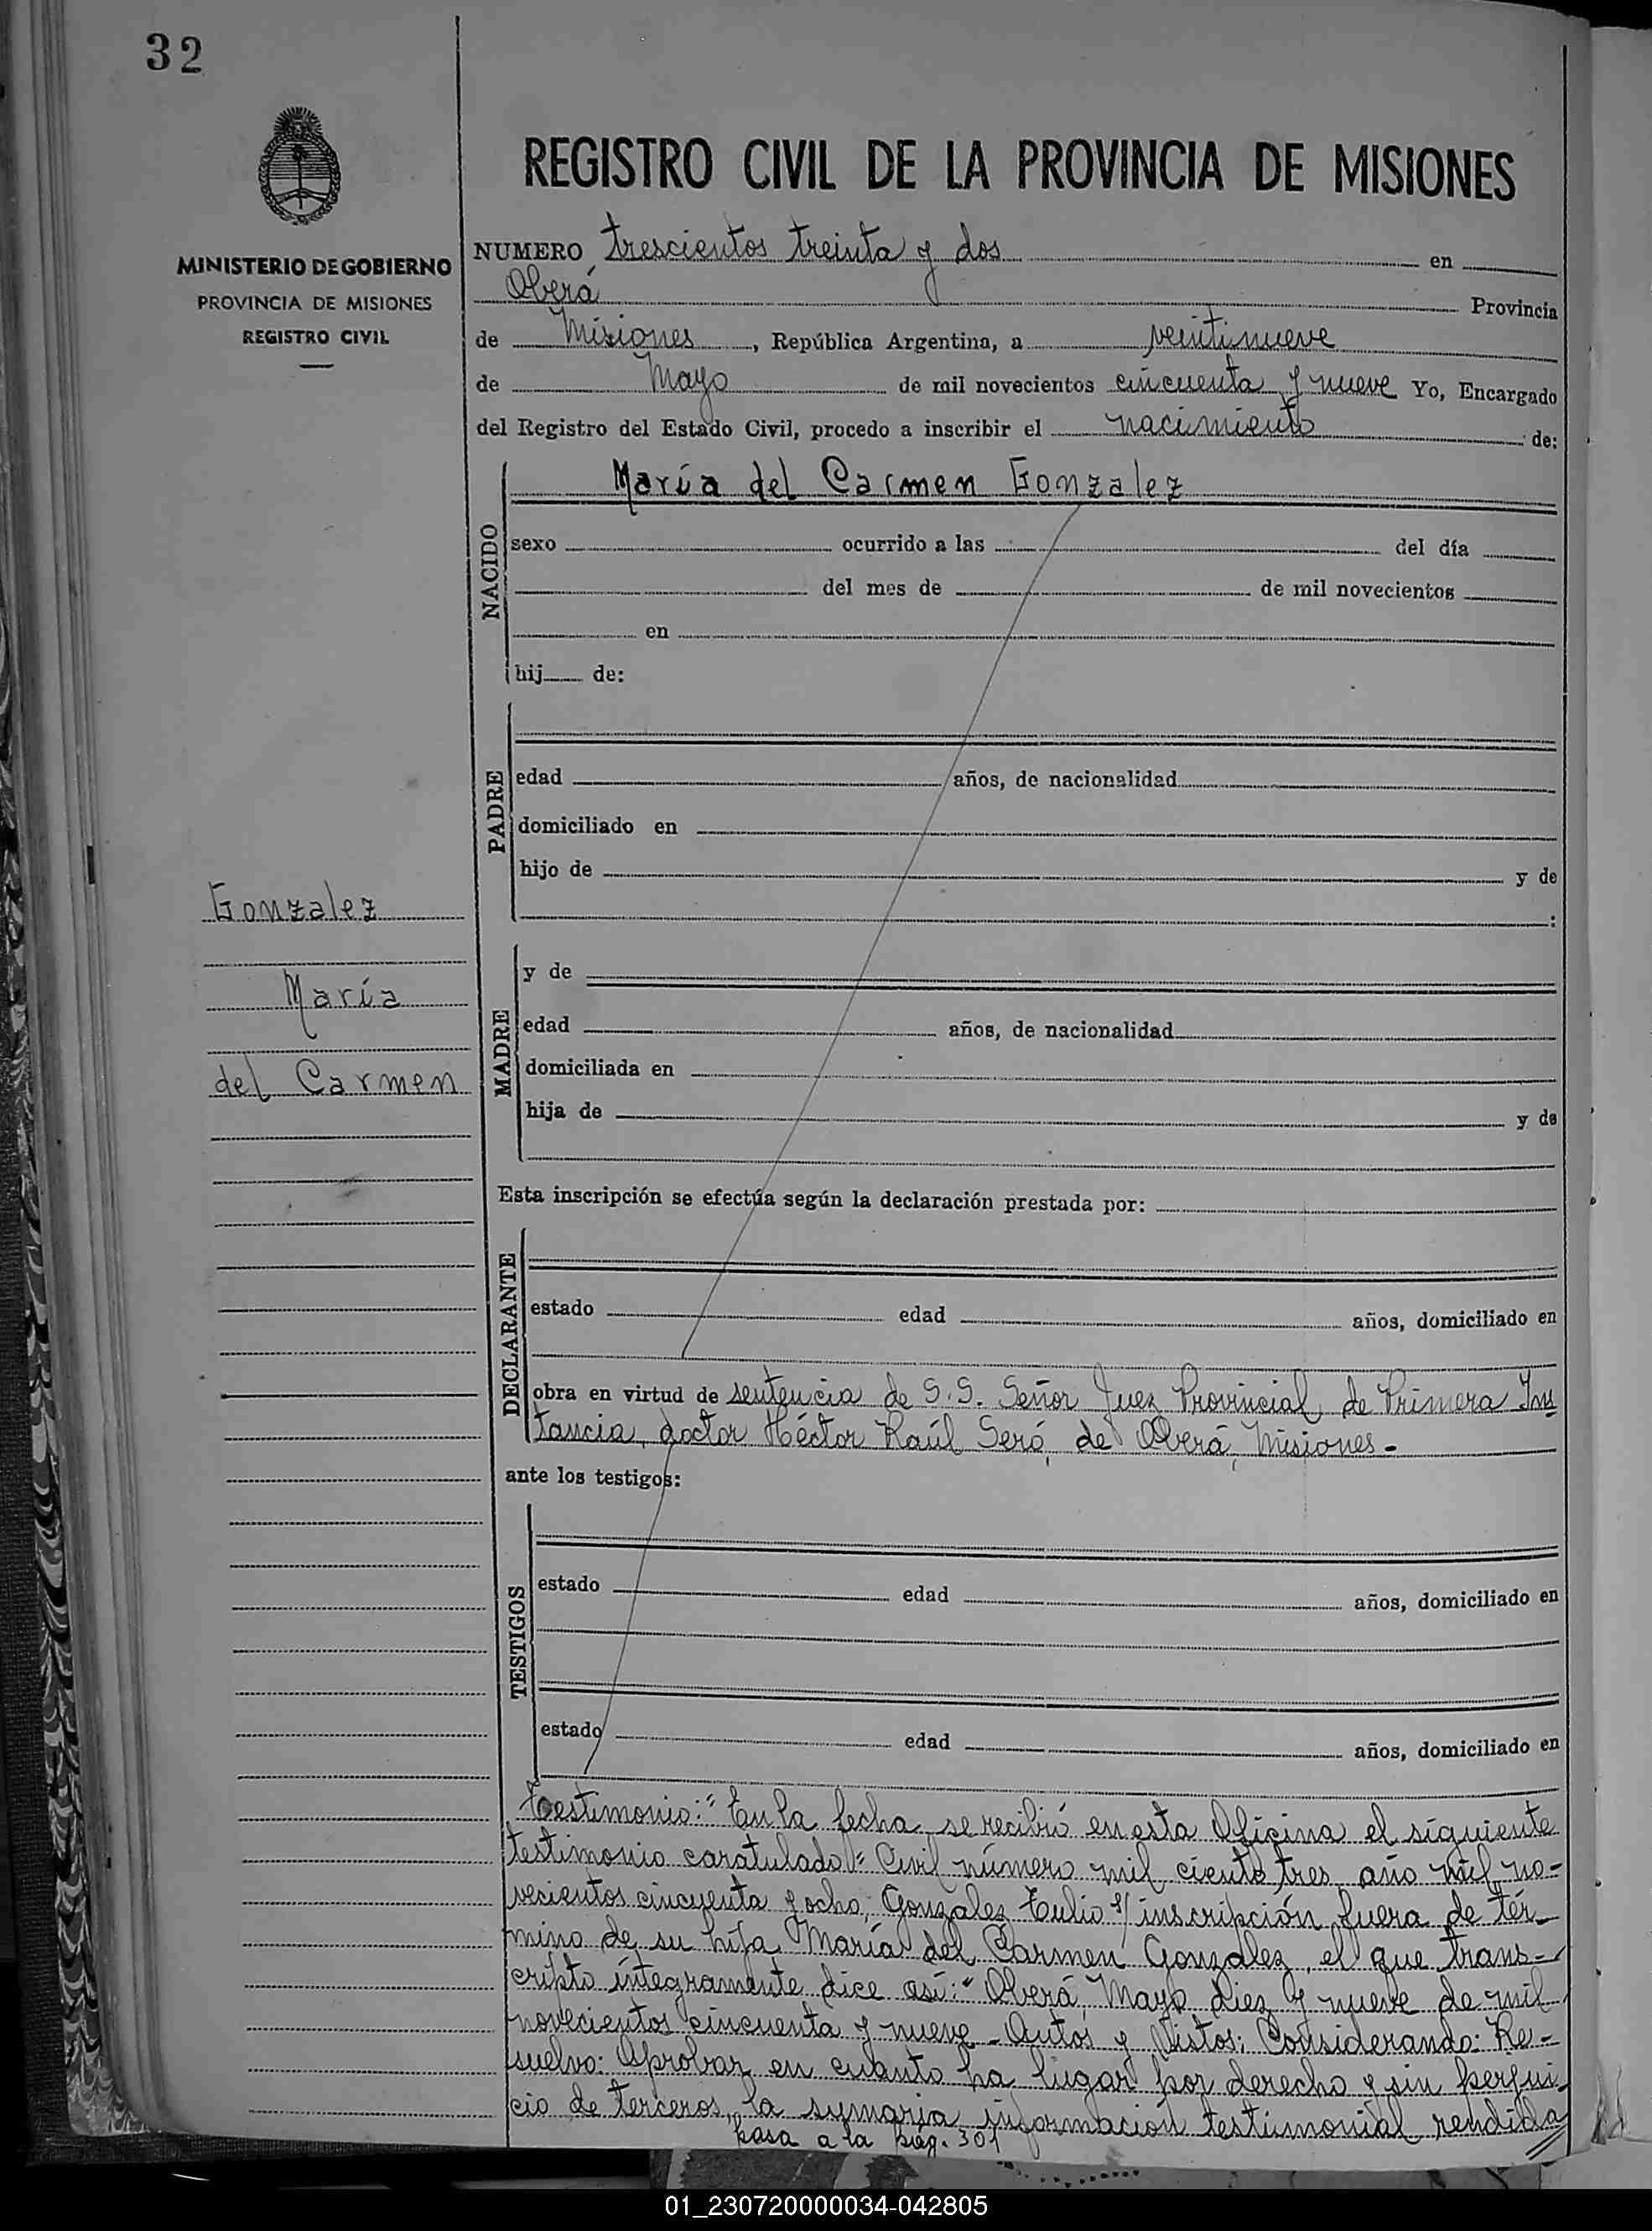 32
MINISTERIO DE GOBIERNO
PROVINCIA DE MISIONES
REGISTRO CIVIL
REGISTRO CIVIL DE LA PROVINCIA DE MISIONES
NUMERO trescientos treinta y dos en
Oberá Provincia
de Misiones, República Argentina, a veintinueve
de Mayo de mil novecientos cincuenta y nueve Yo, Encargado
del Registro del Estado Civil, procedo a inscribir el nacimiento de:
NACIDO
María del Carmen Gonzalez
sexo ocurrido a las del día
del mes de de mil novecientos
en
hij de:
PADRE
edad años, de nacionalidad
domiciliado en
hijo de y de
:
Gonzalez
María
del Carmen
MADRE
y de
edad años, de nacionalidad
domiciliada en
hija de y de
Esta inscripción se efectúa según la declaración prestada por:
DECLARANTE
estado edad años, domiciliado en
obra en virtud de sentencia de S.S. Señor Juez Provincial de Primera Ins
tancia, doctor Héctor Raúl Seró, de Oberá, Misiones.-
ante los testigos:
TESTIGOS
estado edad años, domiciliado en
estado edad años, domiciliado en
Testimonio:" En la fecha se recibió en esta Oficina el siguiente
testimonio caratulado:" Civil número mil ciento tres año mil no-
vecientos cincuenta y ocho; Gonzalez Tulio s/ inscripción fuera de tér-
mino de su hija María del Carmen Gonzalez, el que trans-
cripto íntegramente dice así:" Oberá, Mayo diez y nueve de mil
novecientos cincuenta y nueve - Autos y Vistos; Considerando: Re-
suelvo: Aprobar en cuanto ha lugar por derecho y sin perjui-
cio de terceros, la sumaria información testimonial rendida
pasa a la pág. 301
01_230720000034-042805